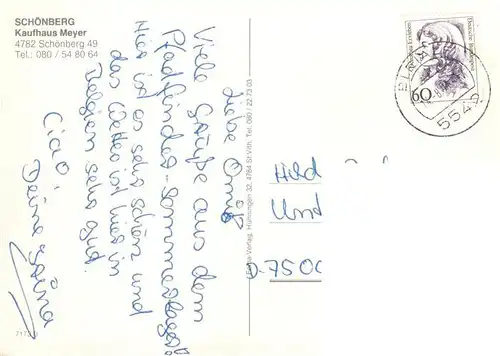 SCHÖNBERG
Kaufhaus Meyer
4782 Schönberg 49
Tel.: 080 / 54 80 64
Liebe Omi,
Viele Grüße aus dem
Pfadfinder-Sommerlager!
Hier ist es sehr schön und
das Wetter ist hier in
Belgien sehr gut.
Ciao,
Deine
Verlag, Hünningen 32, 4784 St. Vith, Tel. 080 / 22 73 03
Deutsche Bundespost
60
554
Hild
Und
D-7500